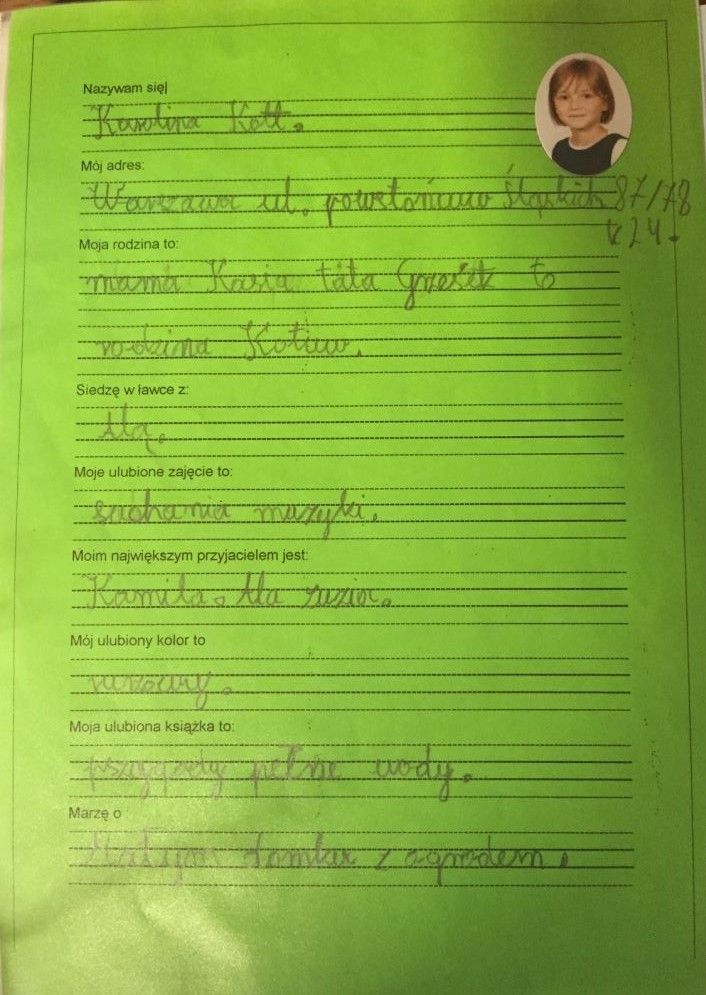 Nazywam się
Karolina Kott.
Mój adres:
Warszawa ul. powstońcuw śląskich 87/78
Moja rodzina to:
mama Kasia tata Grzesiek to
rodzina Kotuw.
Siedzę w ławce z:
Alą.
Moje ulubione zajęcie to:
suchania muzyki.
Moim największym przyjacielem jest:
Kamila. Ala zuzia.
Mój ulubiony kolor to
rurzowy.
Moja ulubiona książka to:
pszygody pełne wody.
Marzę o
Małym domku z ogrodem.